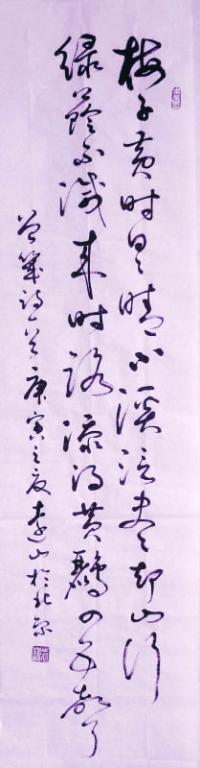 梅子黄时日日晴小溪泛尽却山行
绿荫不减来时路添得黄鹂四五声
曾几诗一首庚寅之夏山於北京